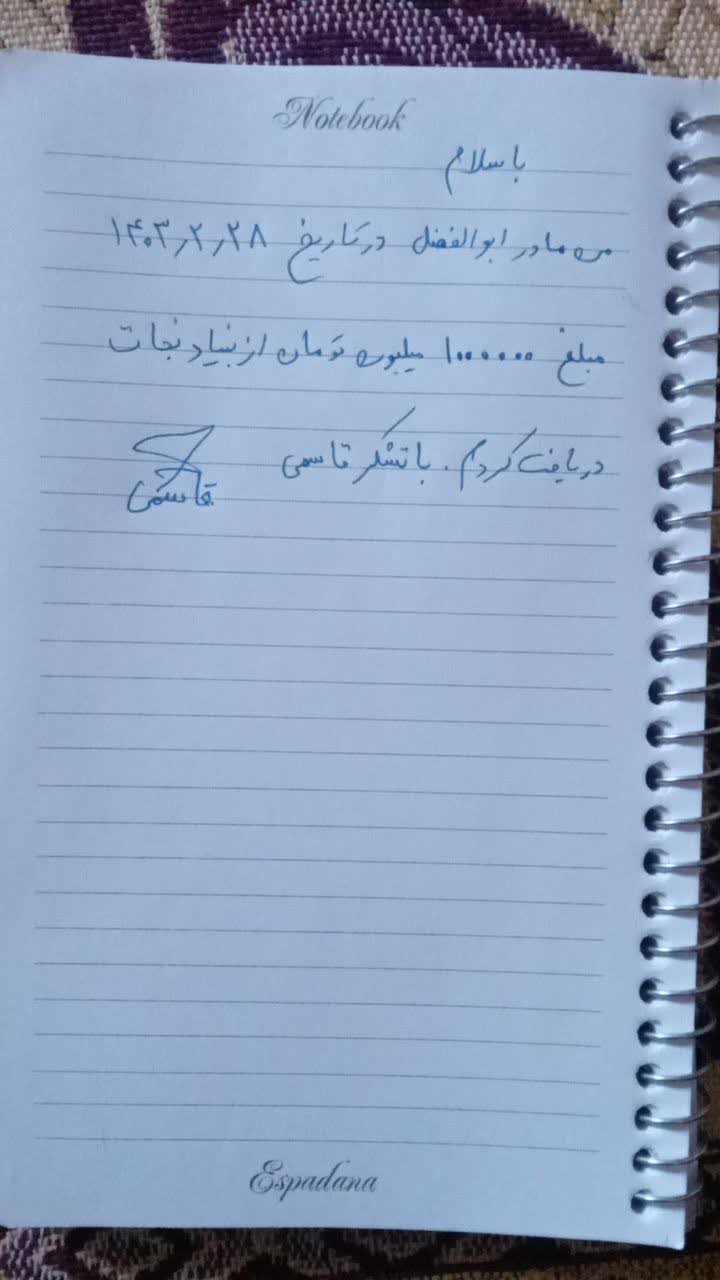 Notebook
با سلام
من مادر ابوالفضل در تاریخ ۱۴۰۳٫۲٫۲۸
مبلغ ۱۰۰۰۰۰۰ میلیون تومان از بنیاد نجات
دریافت کردم. با تشکر قاسمی
قاسمی
Espadana